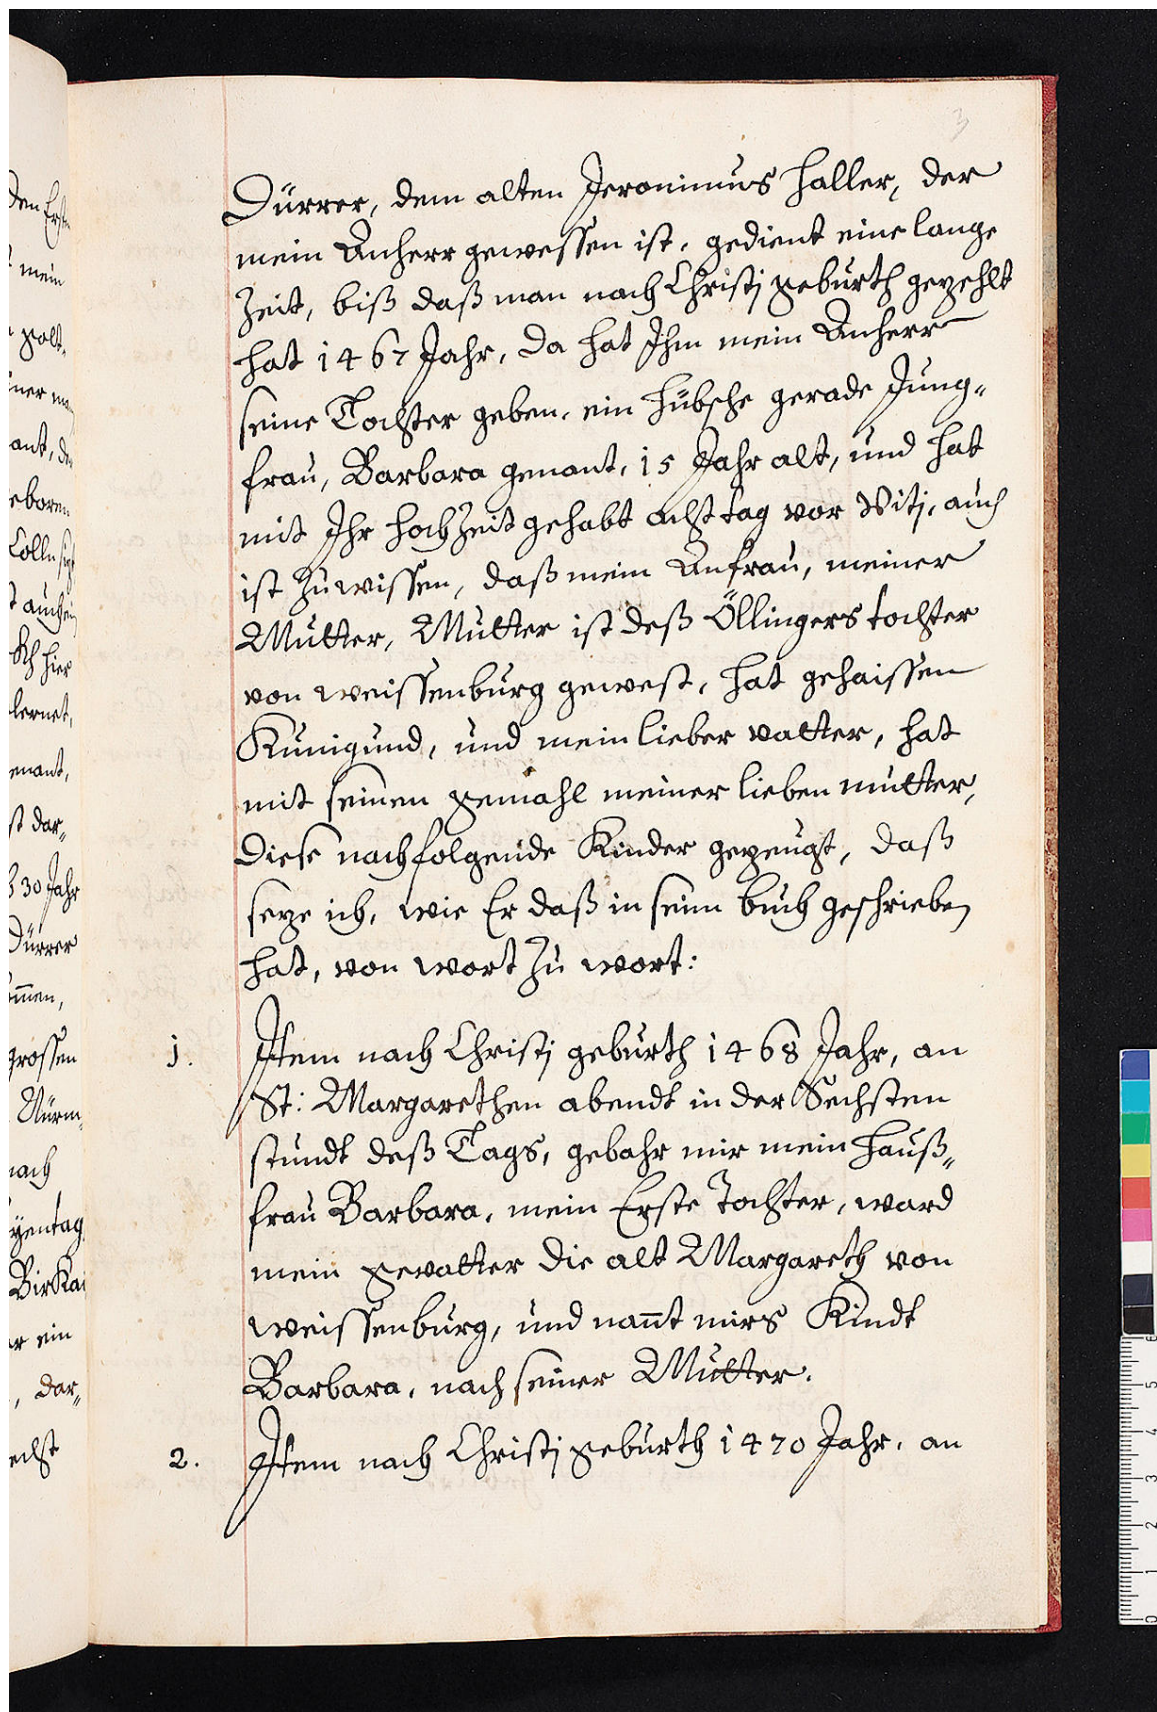 3
Dürrer, dem alten Jeronimus Haller, der
mein Anherr gewessen ist, gedient eine lange
Zeit, biß daß man nach Christj geburth gezehlt
hat 1467 Jahr, da hat Ihm mein Anherr
seine Tochter geben, ein hübsche gerade Jung„
frau, Barbara genant, 15 Jahr alt, und hat
mit Ihr hochZeit gehabt acht tag vor Vitj, auch
ist Zu wissen, daß mein Anfrau, meiner
Mutter, Mutter ist deß Öllingers tochter
von weissenburg gewest, hat gehaissen
Kunigund, und mein lieber vatter, hat
mit seinen gemahl meiner lieben mutter,
Diese nachfolgende Kinder gezeugt, daß
seze ich, wie Er daß in seim buch geschrieben
hat, von wort Zu wort:
j. Item nach Christj geburth 1468 Jahr, an
St: Margarethen abendt in der Sechsten
stundt deß Tags, gebahr mir mein Hauß„
frau Barbara, mein Erste Tochter, ward
mein gevatter die alt Margareth von
weissenburg, und nañt mirs Kindt
Barbara, nach seiner Mutter.
2. Item nach Christj geburth 1470 Jahr, an